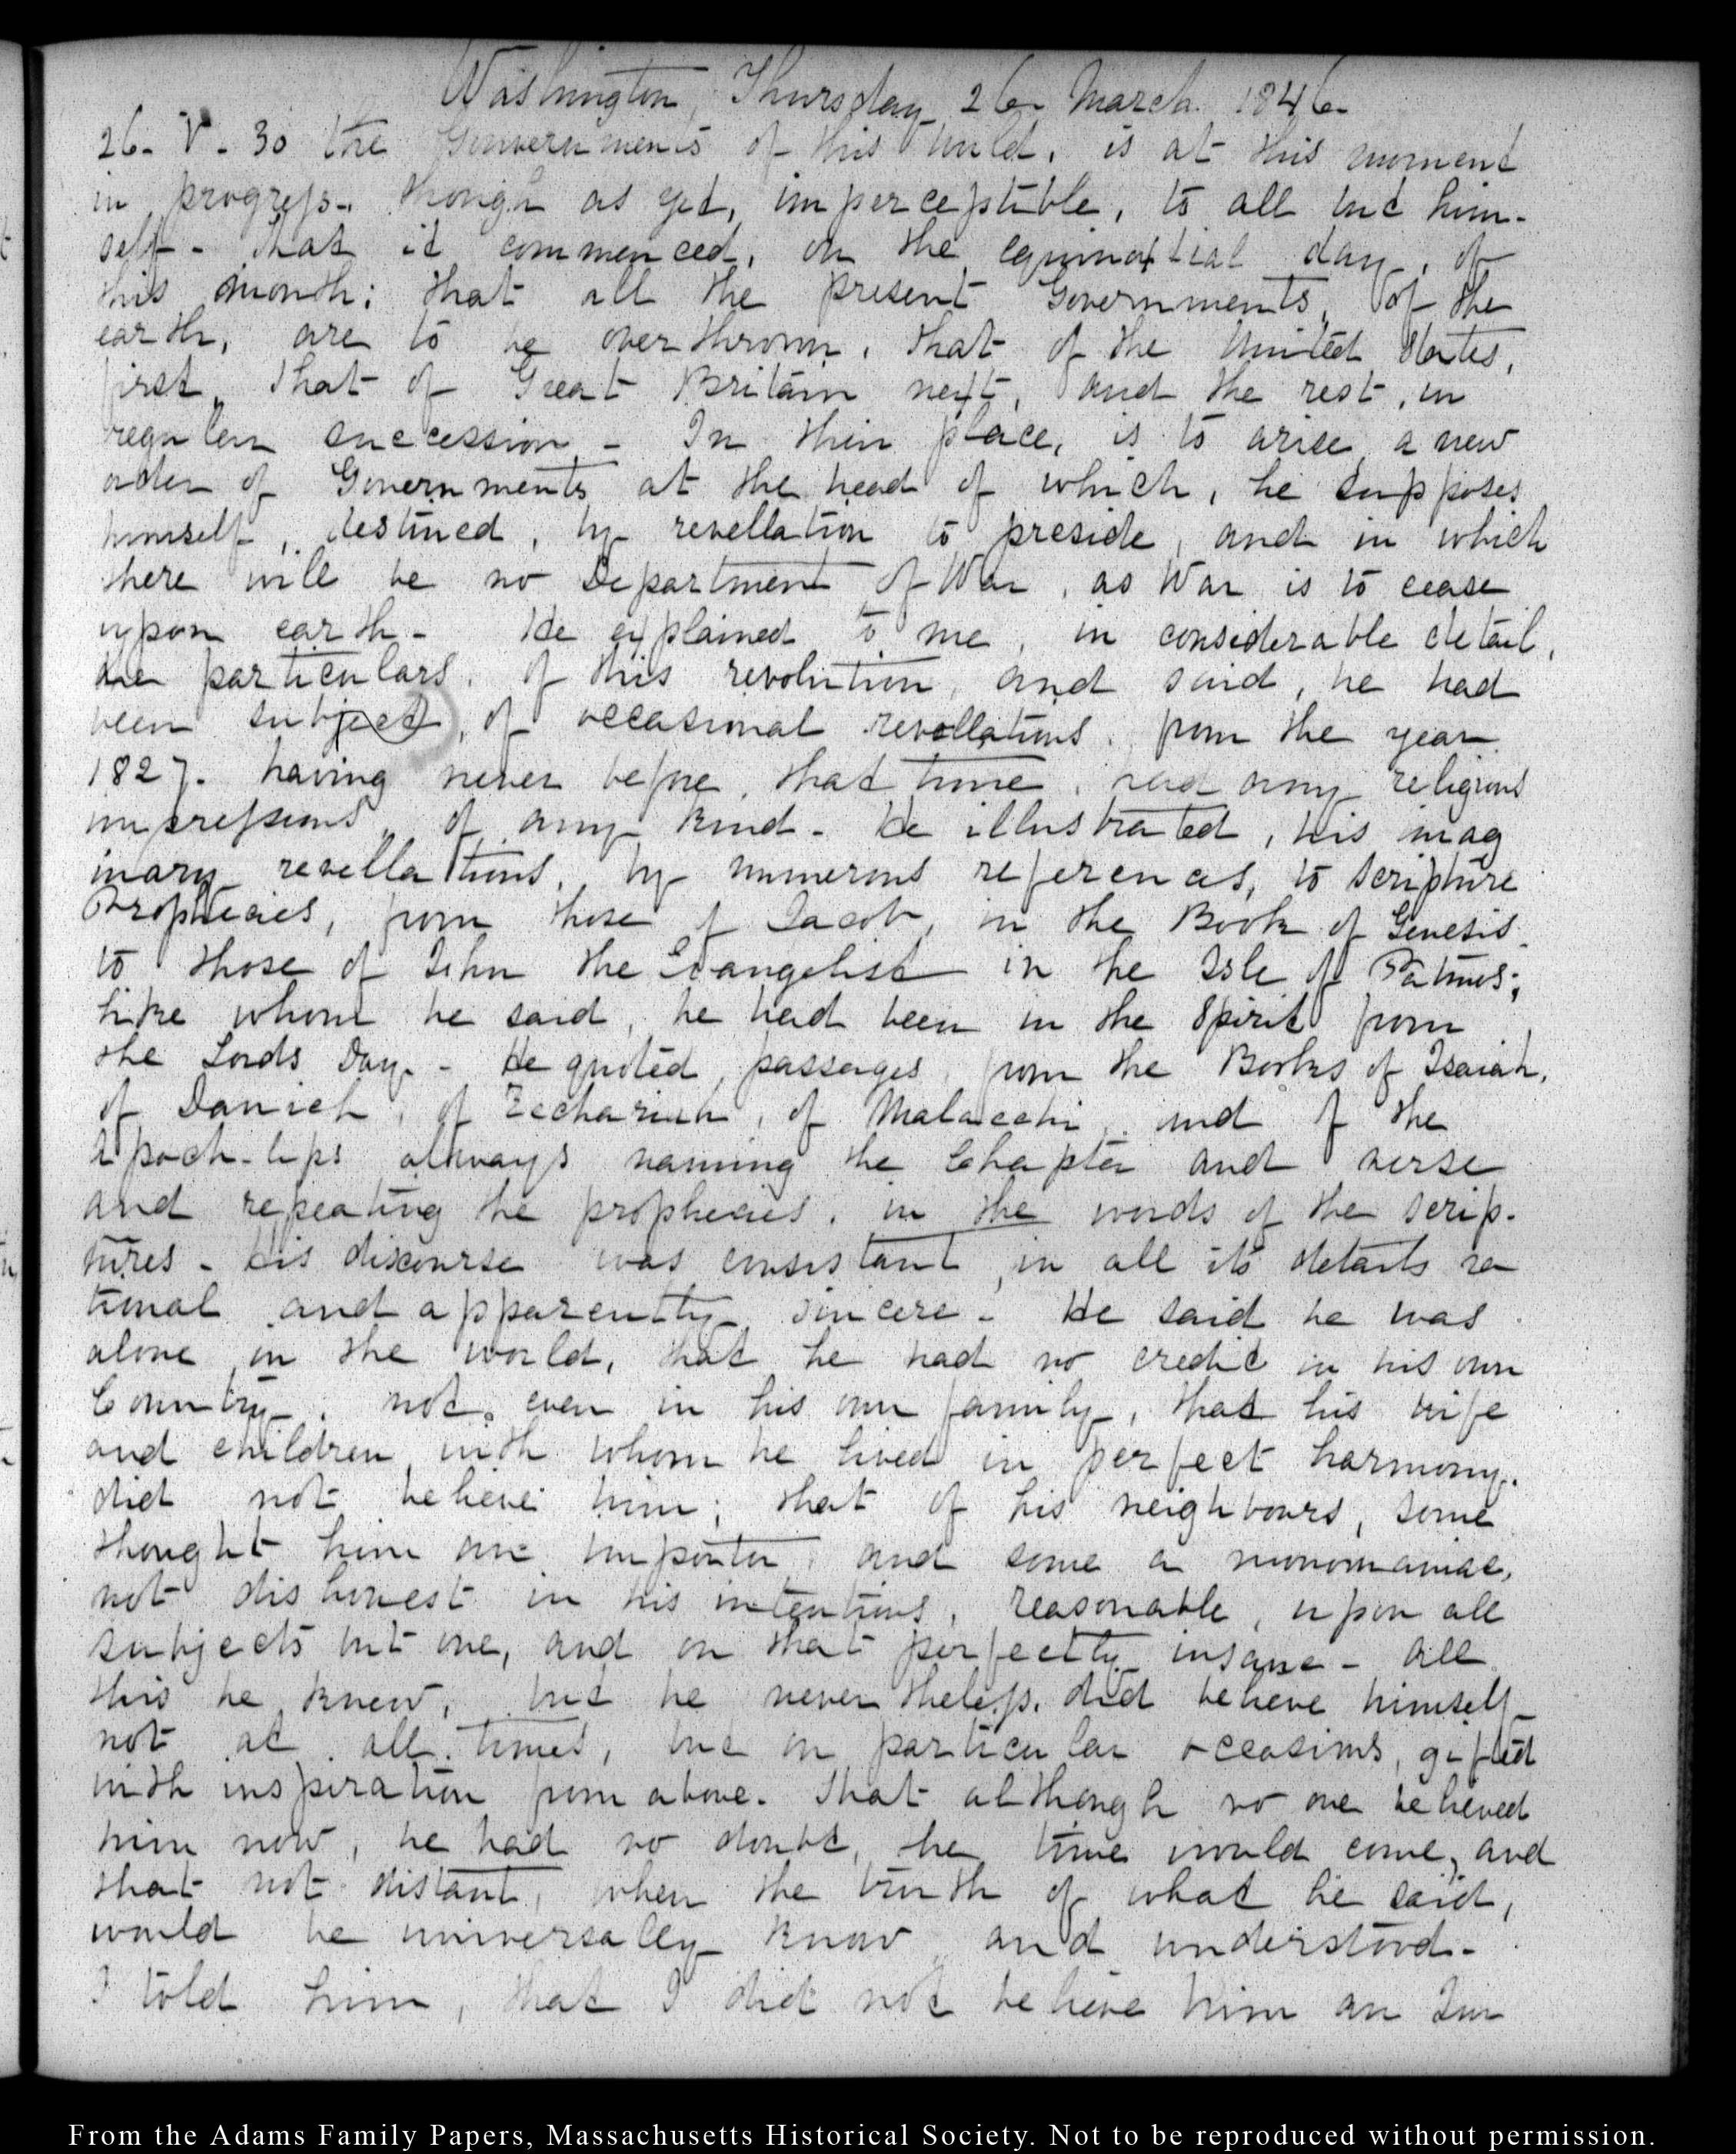 Washington, Thursday 26. March. 1846.
26. V. 30 the Governments of this World, is at this moment
in progress. though as yet, imperceptible, to all but him-
self - that it commenced, on the equinoxtial day, of
this month; that all the present Governments, of the
earth, are to be overthrown, that of the United States,
first, that of Great Britain next, and the rest, in
regular succession - In their place, is to arise a new
order of Governments at the head of which, he supposes
himself, destined, by revellation to preside, and in which
there will be no Department of War, as War is to cease
upon earth - He explained to me, in considerable detail,
the particulars, of this revolution, and said, he had
been subject, of occasional revellations, from the year
1827. having never before, that time, had any religious
impressions, of any kind - He illustrated, his imag
inary revellations, by numerous references, to Scripture
Prophecies, from those of Jacob, in the Book of Genesis.
to those of John the Evangelist in the Isle of Patmos;
like whom he said, he had been in the Spirit from
the Lords Day. - He quoted, passages, from the Books of Isaiah,
of Daniel, of Zechariah, of Malacchi, and of the
Apoch-lips allways naming the Chapter and verse
and repeating the prophecies, in the words of the Scrip-
tures - His discourse was consistant, in all its details ra
tional and apparently sincere - He said he was
alone in the world, that he had no credit in his own
Country, not, even in his own family, that his wife
and children with whom he lived in perfect harmony.
did not believe him; that of his neighbours, some
thought him an impostor, and some a monomaniac,
not dishonest in his intentions, reasonable, upon all
subjects but one, and on that perfectly insane - All
this he knew, but he nevertheless. did believe himself
not at all times, but on particular occasions, gifted
with inspiration from above. That although no one believed
him now, he had no doubt, the time would come, and
that not distant, when the truth of what he said,
would be universally know and understood -
I told him, that I did not believe him an Im
From the Adams Family Papers, Massachusetts Historical Society. Not to be reproduced without permission.